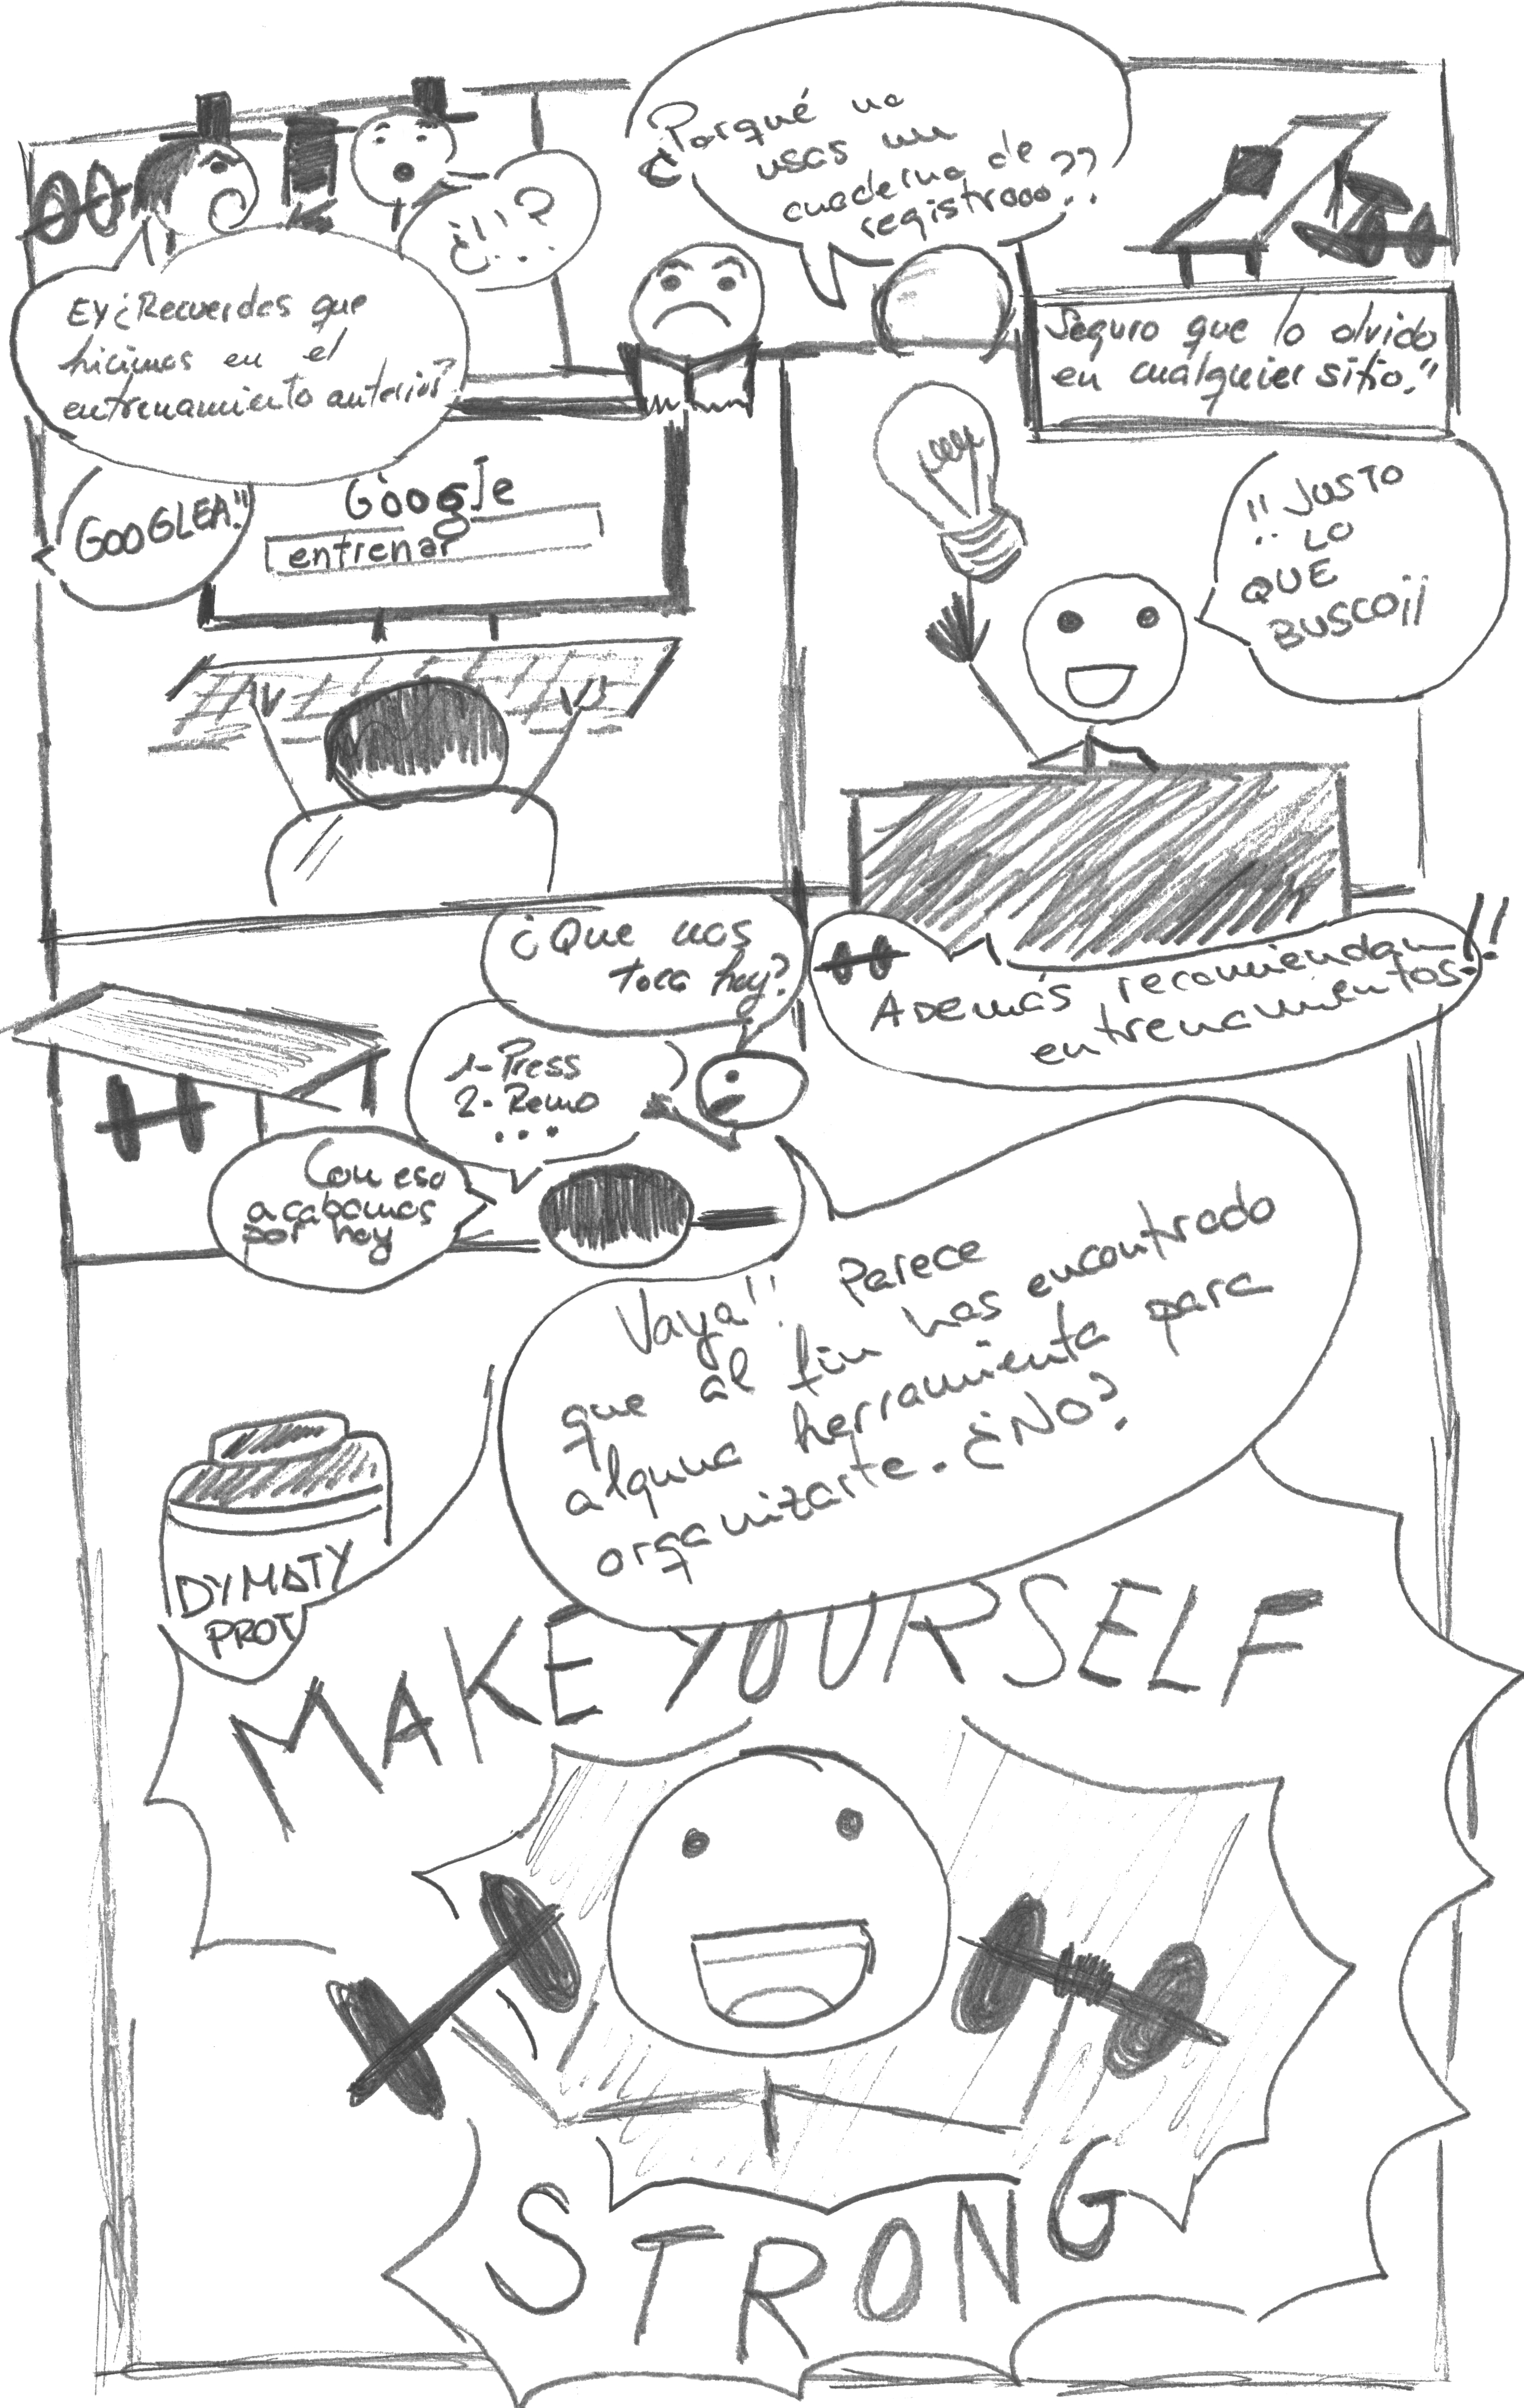 EY ¿Recuerdas que
hicimos en el
entrenamiento anterior?
¿!!?
...
¿Porqué no
usas un
cuaderno de
registrooo??
Seguro que lo olvido
en cualquier sitio!!
GOOGLEA!!
Google
entrenar
!!JUSTO
LO
QUE
BUSCO¡¡
Además recomiendan
entrenamientos!!
¿Que nos
toca hoy?
1-Press
2-Remo
...
Con eso
acabamos
por hoy
Vaya!! Parece
que al fin has encontrado
alguna herramienta para
organizarte. ¿No?
DYMATY
PROT
MAKE YOURSELF
STRONG